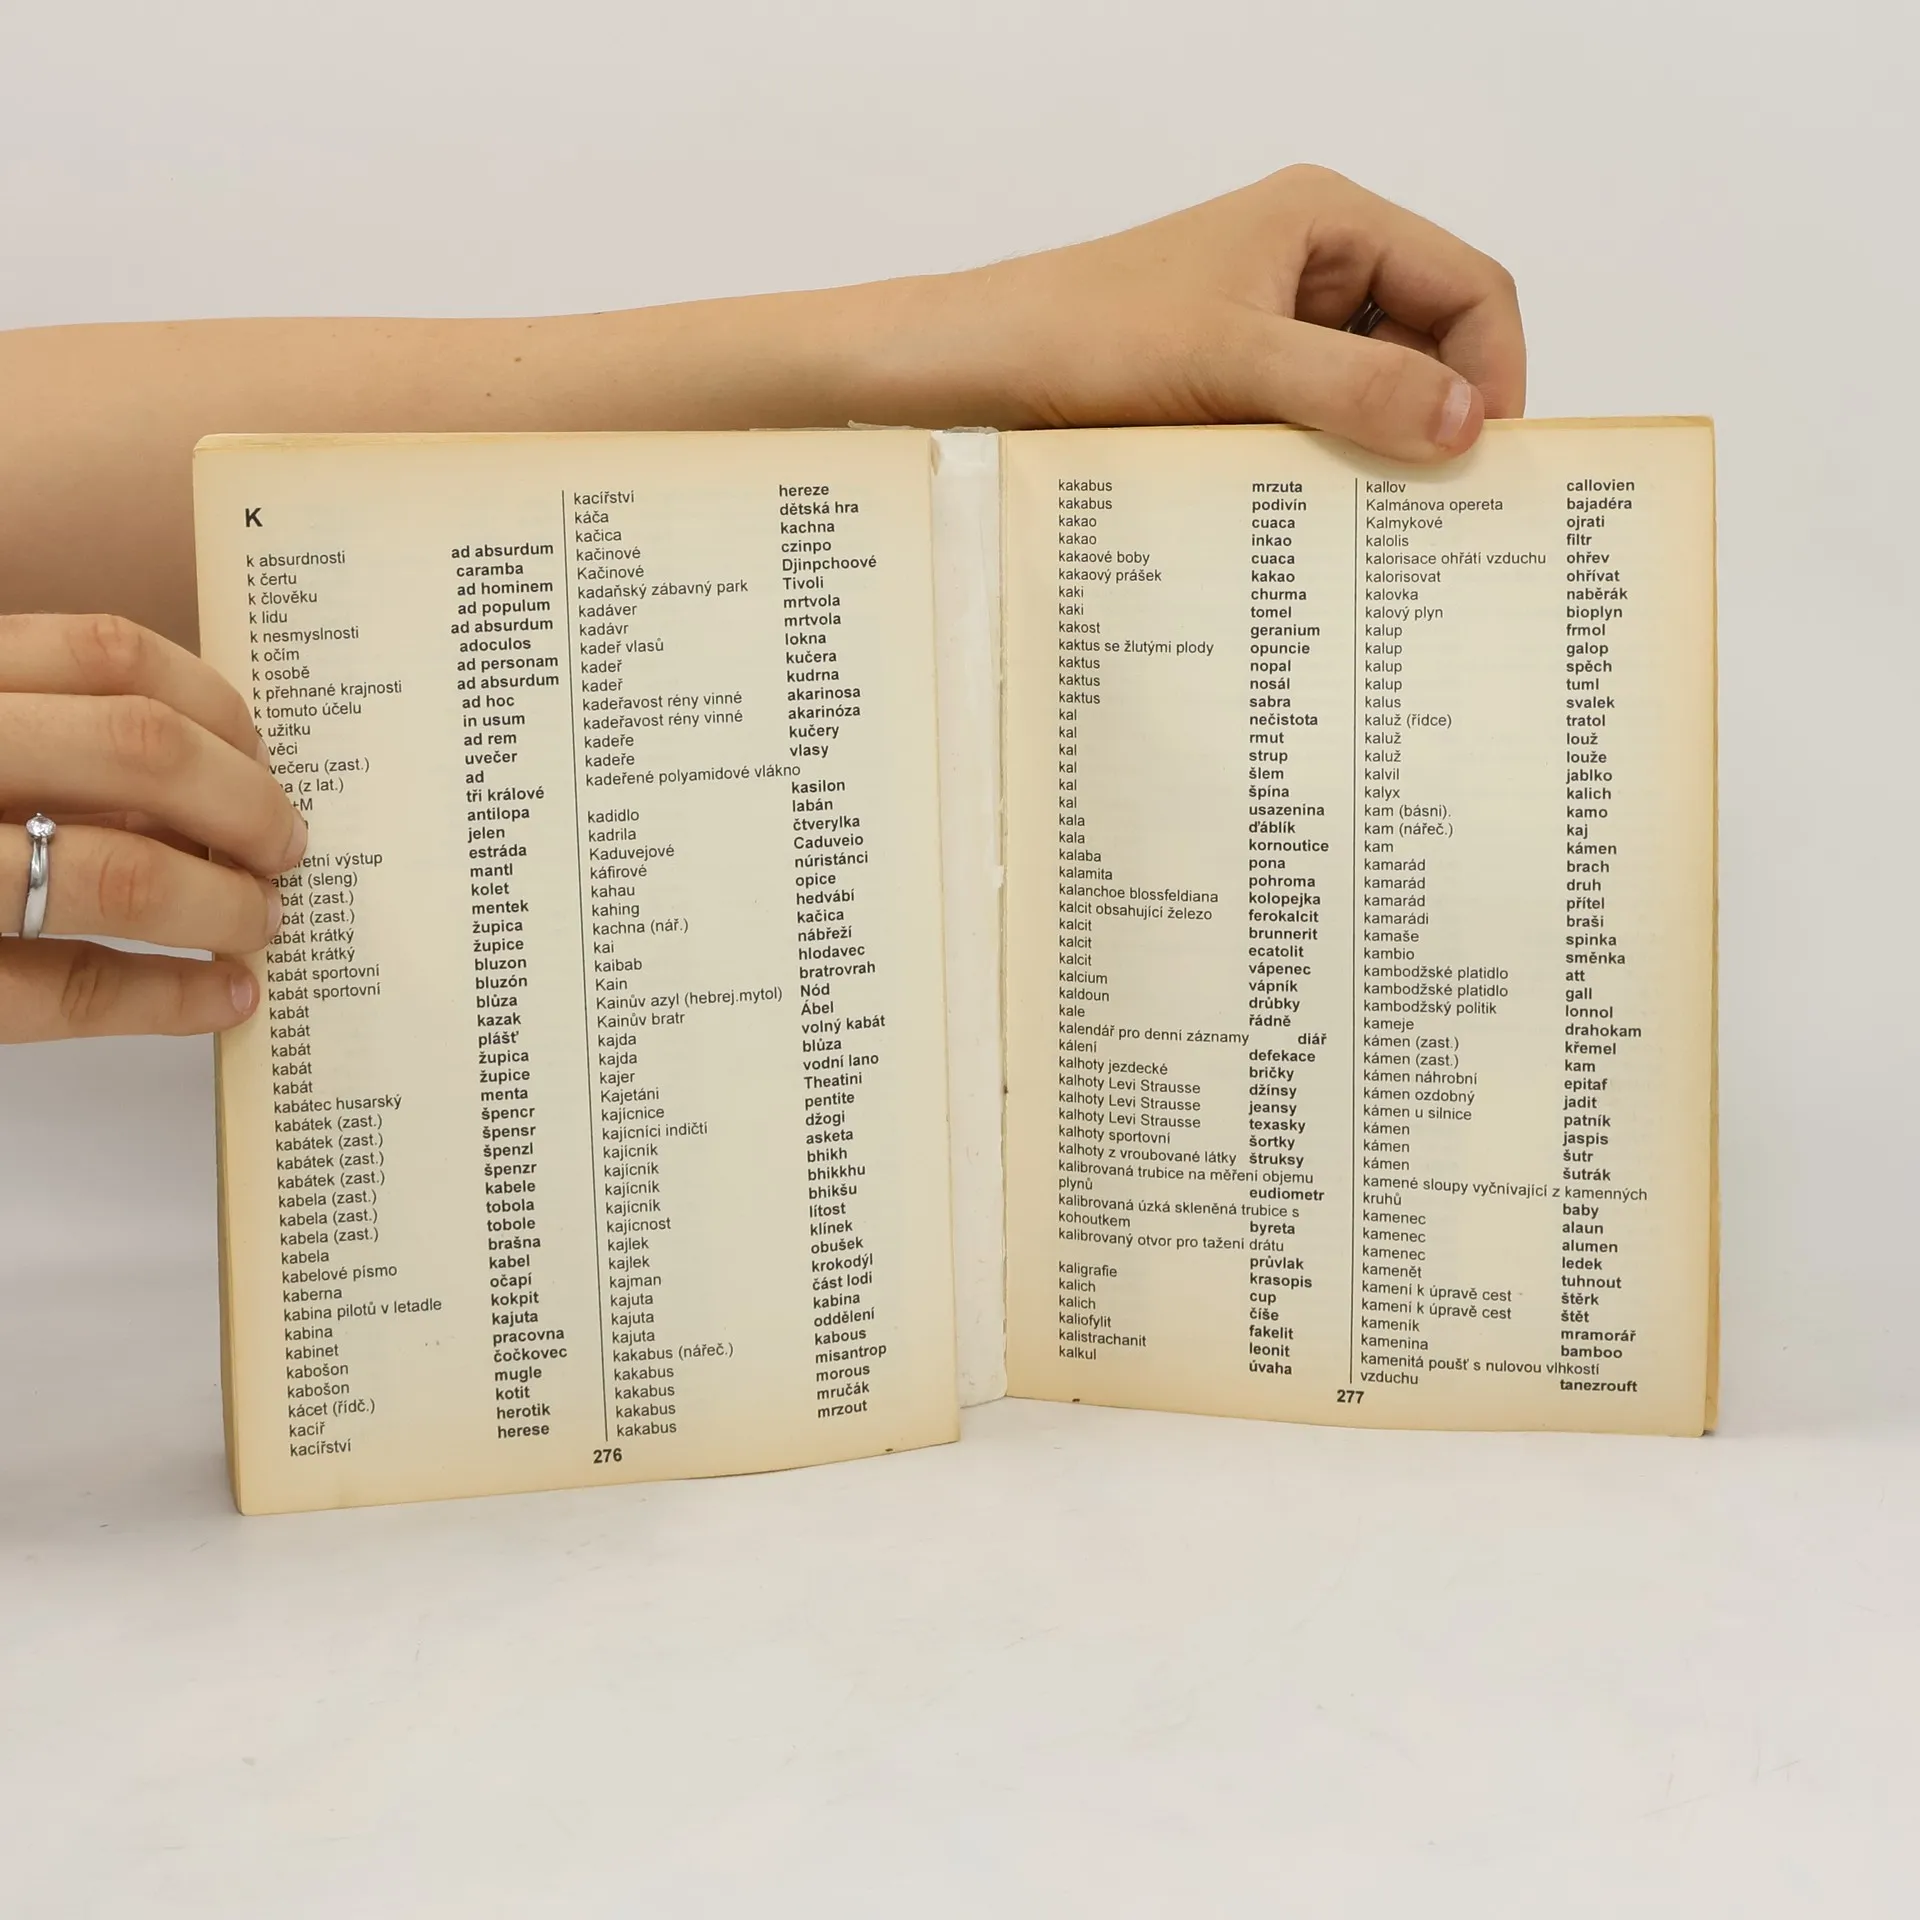 K
k absurdnosti ad absurdum
k čertu caramba
k člověku ad hominem
k lidu ad populum
k nesmyslnosti ad absurdum
k očím adoculos
k osobě ad personam
k přehnané krajnosti ad absurdum
k tomuto účelu ad hoc
k užitku in usum
věci ad rem
večeru (zast.) uvečer
(z lat.) ad
+M tři králové
antilopa
jelen
výstup estráda
kabát (sleng) mantl
kabát (zast.) kolet
kabát (zast.) mentek
kabát krátký župica
kabát krátký župice
kabát sportovní bluzon
kabát sportovní bluzón
kabát blůza
kabát kazak
kabát plášť
kabát župica
kabát župice
kabátec husarský menta
kabátek (zast.) špencr
kabátek (zast.) špensr
kabátek (zast.) špenzl
kabátek (zast.) špenzr
kabela (zast.) kabele
kabela (zast.) tobola
kabela (zast.) tobole
kabela brašna
kabelové písmo kabel
kaberna očapí
kabina pilotů v letadle kokpit
kabina kajuta
kabinet pracovna
kabošon čočkovec
kabošon mugle
kácet (řídč.) kotit
kacíř herotik
kacířství herese
kacířství hereze
káča dětská hra
kačica kachna
kačinové czinpo
Kačinové Djinpchoové
kadaňský zábavný park Tivoli
kadáver mrtvola
kadávr mrtvola
kadeř vlasů lokna
kadeř kučera
kadeř kudrna
kadeřavost rény vinné akarinosa
kadeřavost rény vinné akarinóza
kadeře kučery
kadeře vlasy
kadeřené polyamidové vlákno
kasilon
kadidlo labán
kadrila čtverylka
Kaduvejové Caduveio
káfirové núristánci
kahau opice
kahing hedvábí
kachna (nář.) kačica
kai nábřeží
kaibab hlodavec
Kain bratrovrah
Kainův azyl (hebrej.mytol) Nód
Kainův bratr Ábel
kajda volný kabát
kajda blůza
kajer vodní lano
Kajetáni Theatini
kajícnice pentite
kajícníci indičtí džogi
kajícník asketa
kajícník bhikh
kajícník bhikkhu
kajícník bhikšu
kajícnost lítost
kajlek klínek
kajlek obušek
kajman krokodýl
kajuta část lodi
kajuta kabina
kajuta oddělení
kakabus (nářeč.) kabous
kakabus misantrop
kakabus morous
kakabus mručák
kakabus mrzout
276
kakabus mrzuta
kakabus podivín
kakao cuaca
kakao inkao
kakaové boby cuaca
kakaový prášek kakao
kaki churma
kaki tomel
kakost geranium
kaktus se žlutými plody opuncie
kaktus nopal
kaktus nosál
kaktus sabra
kal nečistota
kal rmut
kal strup
kal šlem
kal špína
kal usazenina
kala ďáblík
kala kornoutice
kalaba pona
kalamita pohroma
kalanchoe blossfeldiana kolopejka
kalcit obsahující železo ferokalcit
kalcit brunnerit
kalcit ecatolit
kalcit vápenec
kalcium vápník
kaldoun drůbky
kale řádně
kalendář pro denní záznamy diář
kálení defekace
kalhoty jezdecké bričky
kalhoty Levi Strausse džínsy
kalhoty Levi Strausse jeansy
kalhoty Levi Strausse texasky
kalhoty sportovní šortky
kalhoty z vroubované látky štruksy
kalibrovaná trubice na měření objemu
plynů eudiometr
kalibrovaná úzká skleněná trubice s
kohoutkem byreta
kalibrovaný otvor pro tažení drátu
průvlak
kaligrafie krasopis
kalich cup
kalich číše
kaliofylit fakelit
kalistrachanit leonit
kalkul úvaha
kallov callovien
Kalmánova opereta bajadéra
Kalmykové ojrati
kalolis filtr
kalorisace ohřátí vzduchu ohřev
kalorisovat ohřívat
kalovka naběrák
kalový plyn bioplyn
kalup frmol
kalup galop
kalup spěch
kalup tuml
kalus svalek
kaluž (řídce) tratol
kaluž louž
kaluž louže
kalvil jablko
kalyx kalich
kam (básni). kamo
kam (nářeč.) kaj
kam kámen
kamarád brach
kamarád druh
kamarád přítel
kamarádi braši
kamaše spinka
kambio směnka
kambodžské platidlo att
kambodžské platidlo gall
kambodžský politik lonnol
kameje drahokam
kámen (zast.) křemel
kámen (zast.) kam
kámen náhrobní epitaf
kámen ozdobný jadit
kámen u silnice patník
kámen jaspis
kámen šutr
kámen šutrák
kamené sloupy vyčnívající z kamenných
kruhů baby
kamenec alaun
kamenec alumen
kamenec ledek
kamenět tuhnout
kamení k úpravě cest štěrk
kamení k úpravě cest štět
kameník mramorář
kamenina bamboo
kamenitá poušť s nulovou vlhkostí
vzduchu tanezrouft
277